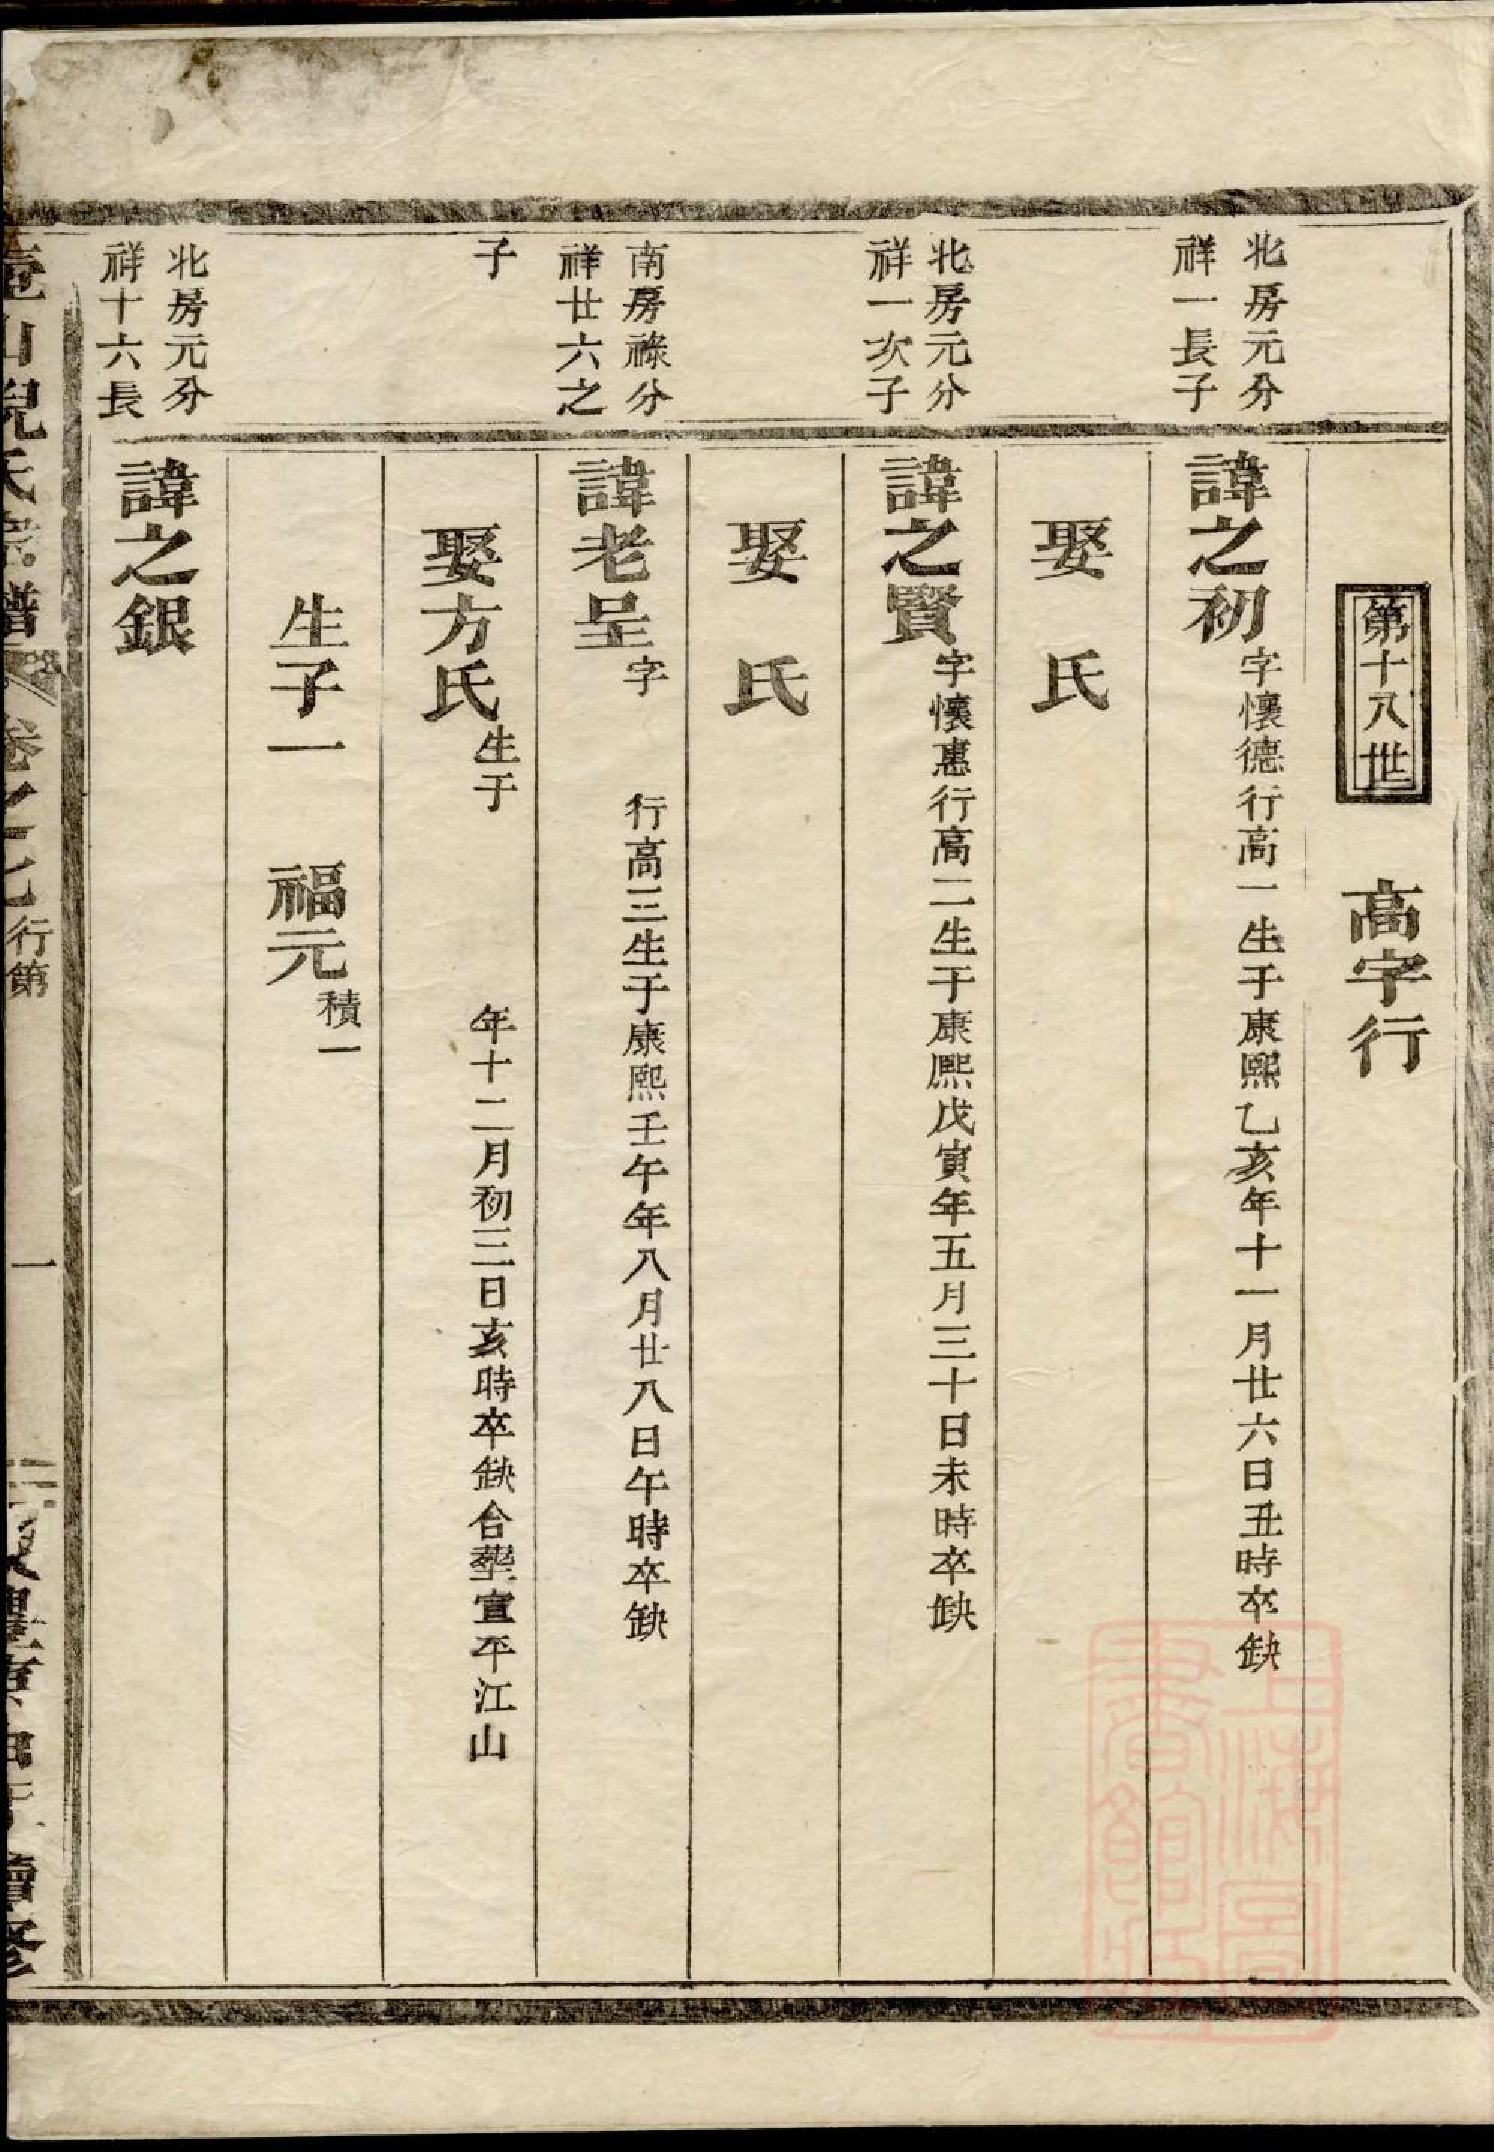 第十八世 高字行
北房元分
祥一長子
諱之初 字懷德行高一生于康熙乙亥年十一月廿六日丑時卒缺
娶 氏
北房元分
祥一次子
諱之賢 字懷惠行高二生于康熙戊寅年五月三十日未時卒缺
娶 氏
南房祿分
祥廿六之
子
諱老呈 字 行高三生于康熙壬午年八月廿八日午時卒缺
娶方氏 生于 年十二月初三日亥時卒缺合塟宣平江山
生子一 福元 積一
北房元分
祥十六長
諱之銀
山倪氏宗譜 卷之七 行第 一 續修
上海圖
書館藏